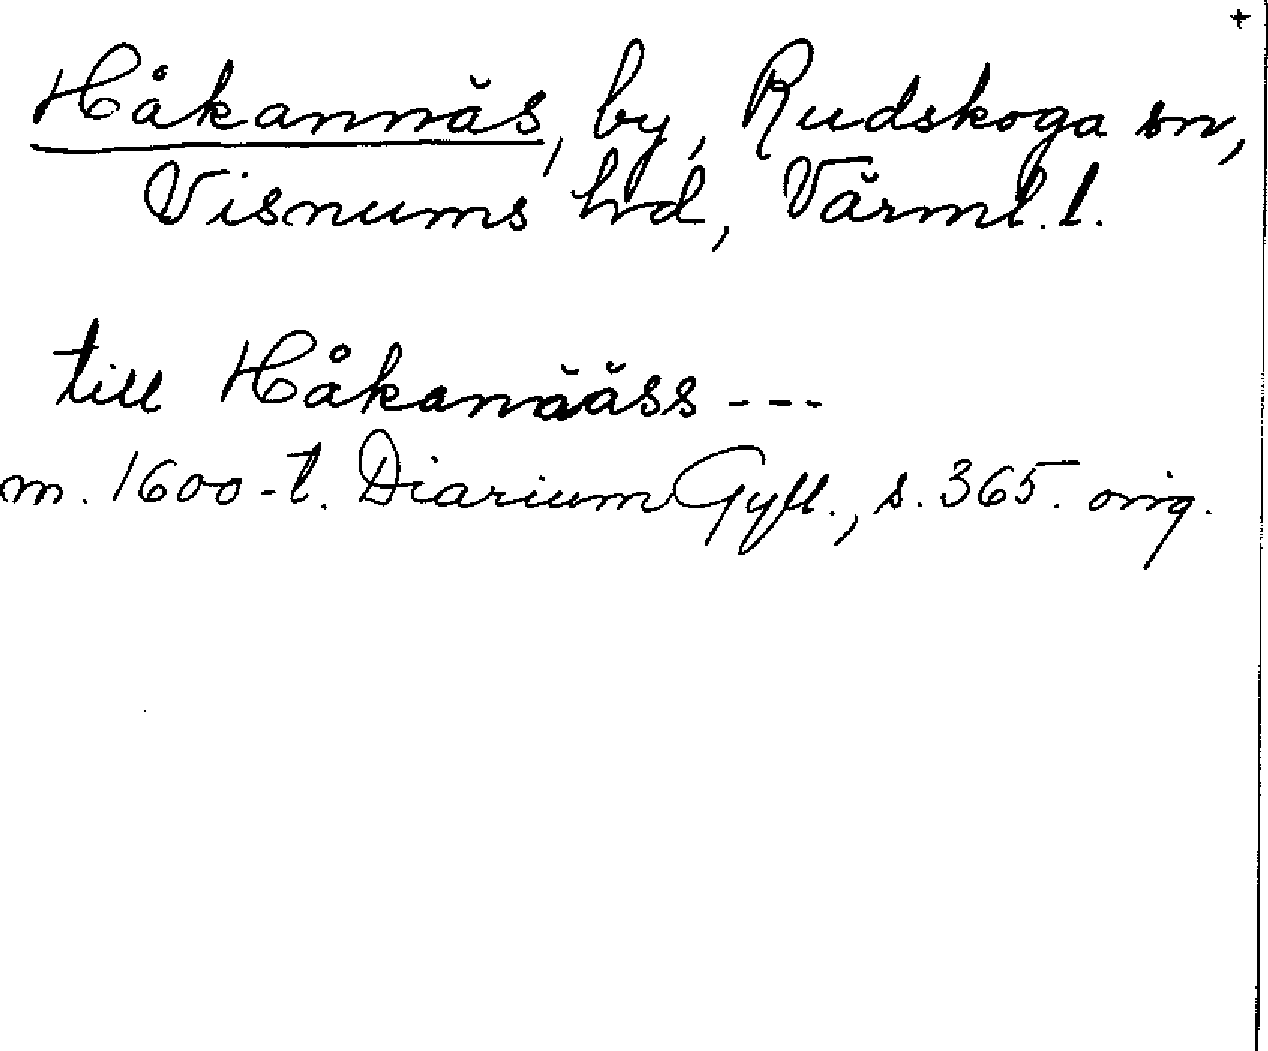 +
Håkannäs, by, Rudskoga sn,
Visnums hd, Värml. l.
till Håkanääss ---
m. 1600-t. Diarium Gyll., s. 365. orig.